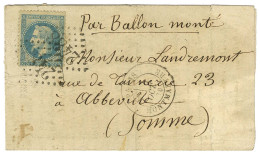 Par Ballon monté
Monsieur Landremont
rue de Tannerie 23
à Abbeville
(Somme)